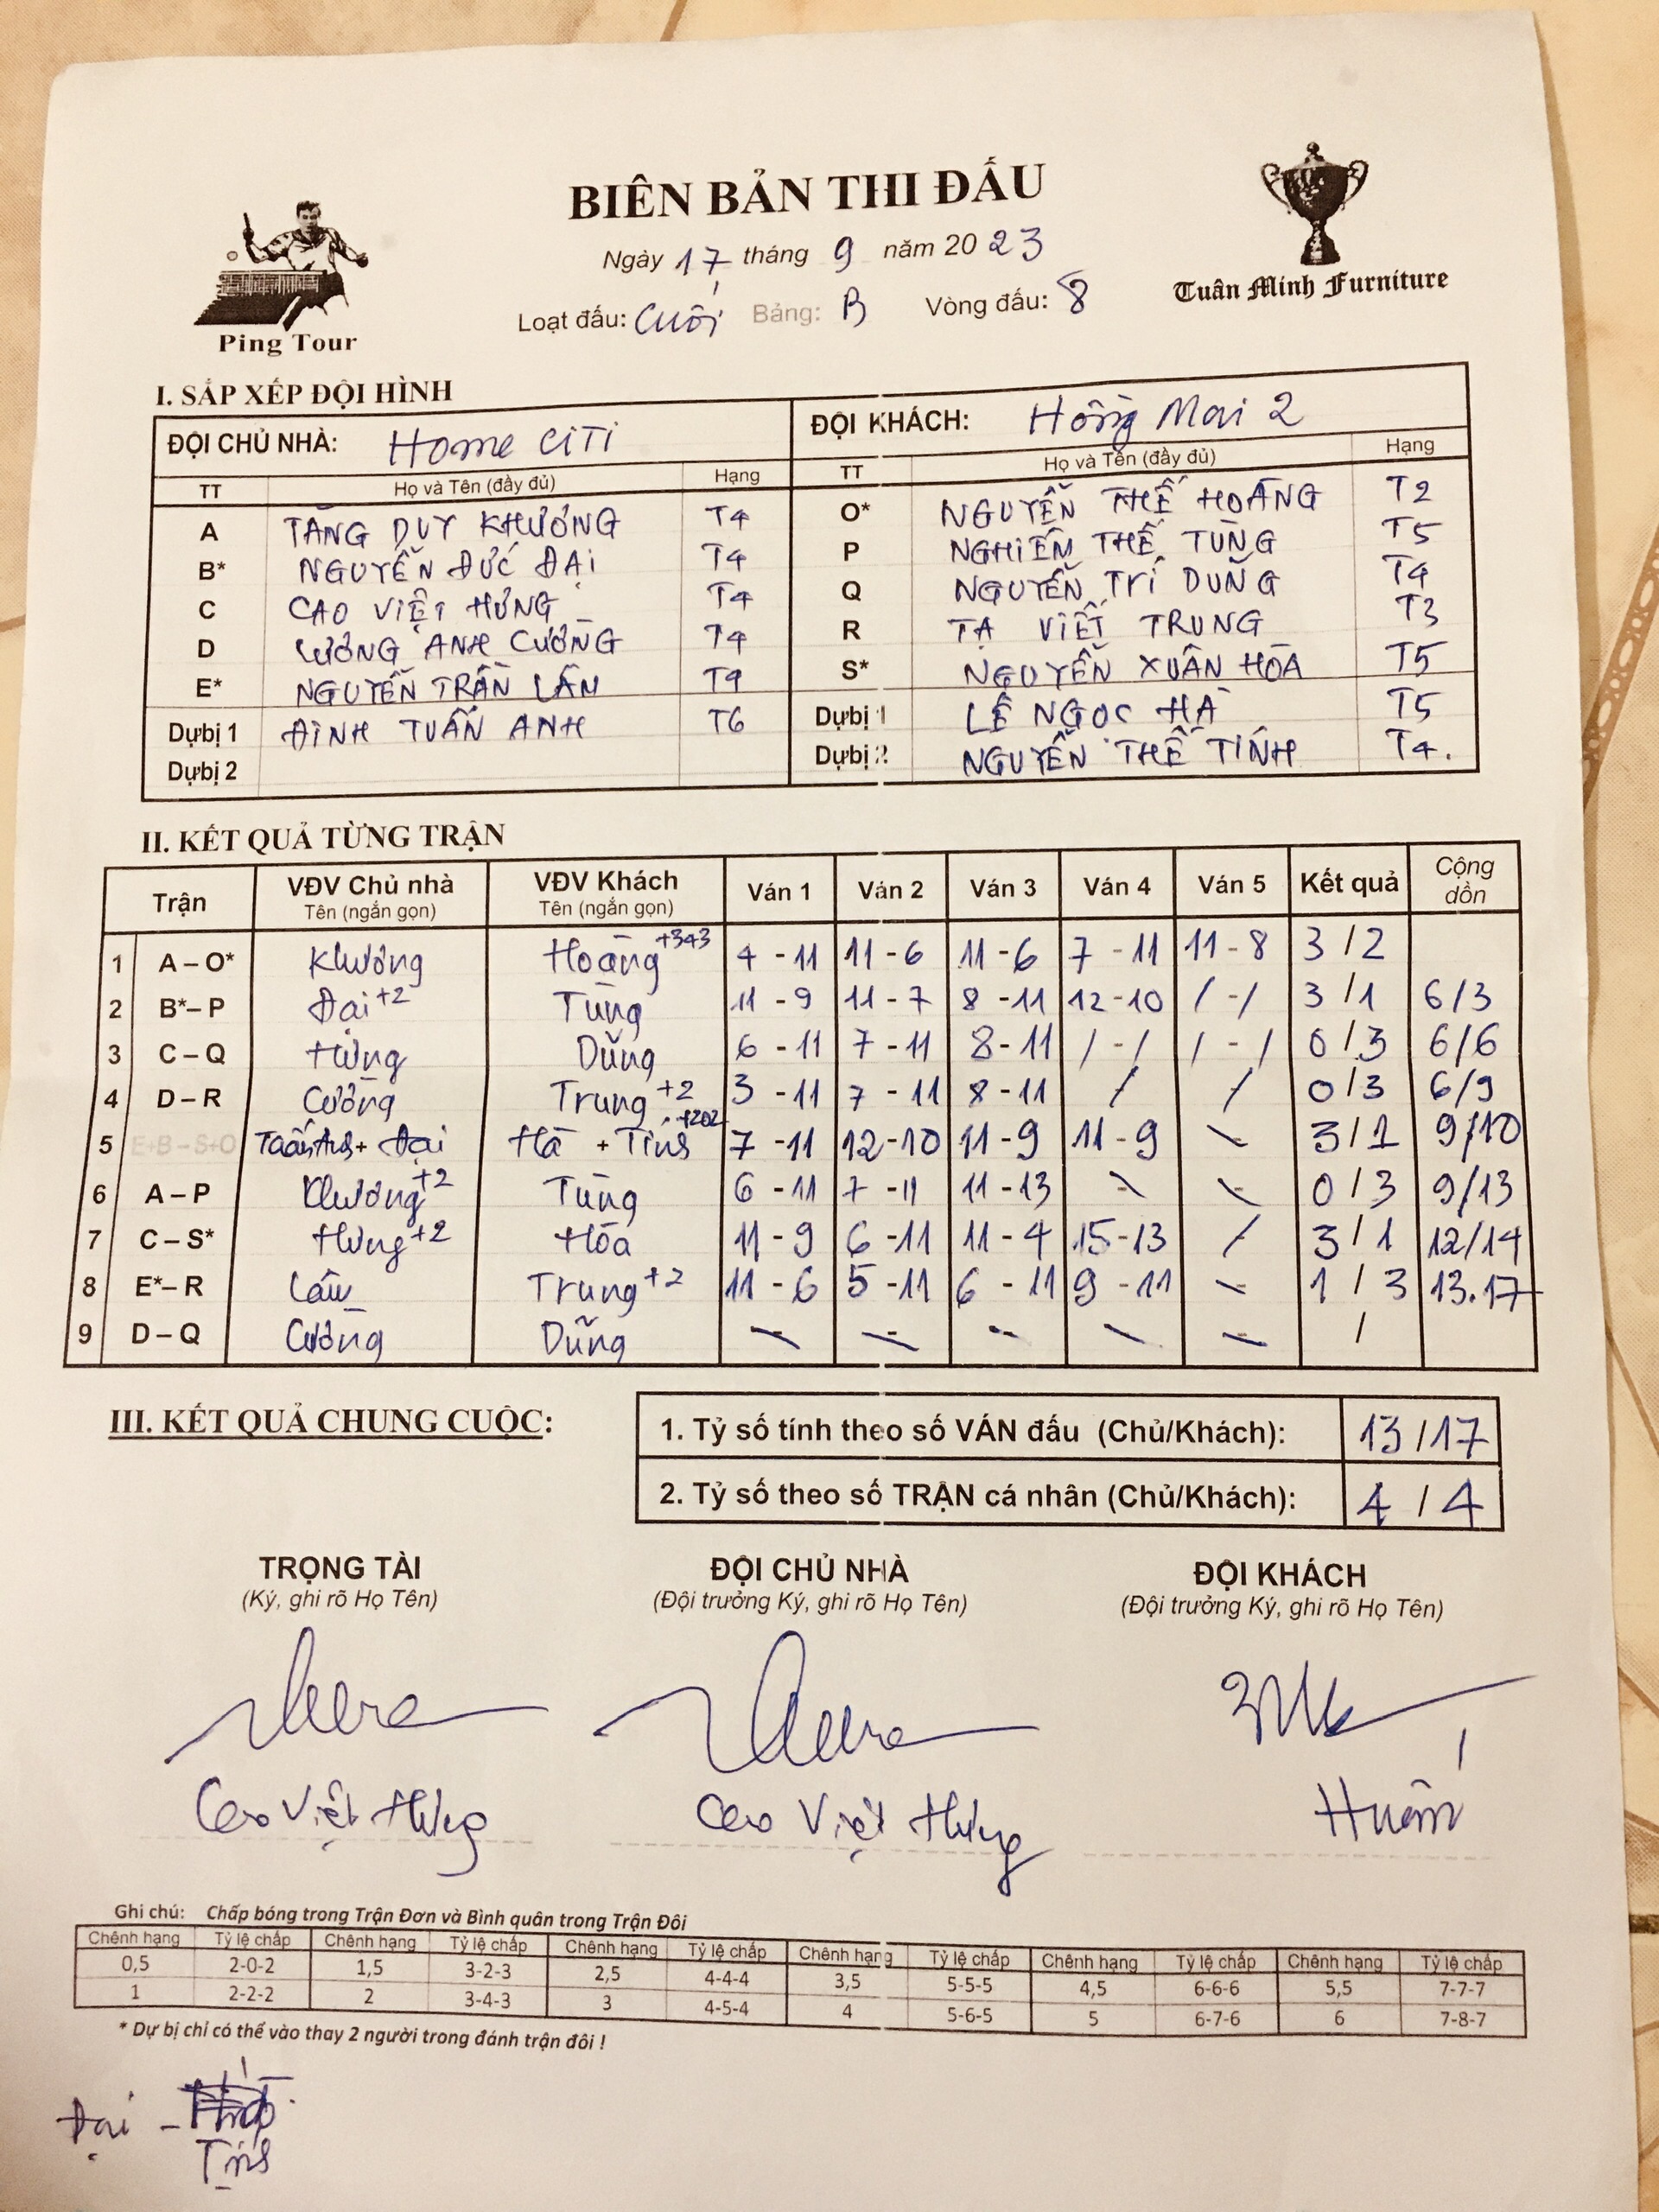 BIÊN BẢN THI ĐẤU
Ngày 17 tháng 9 năm 20 23
Loạt đấu: Cuối Bảng: B Vòng đấu: 8
Ping Tour
Tuân Minh Furniture
I. SẮP XẾP ĐỘI HÌNH
ĐỘI CHỦ NHÀ: Home CiTi ĐỘI KHÁCH: Hồng Mai 2
TT Họ và Tên (đầy đủ) Hạng TT Họ và Tên (đầy đủ) Hạng
A TĂNG DUY KHƯƠNG T4 O* NGUYỄN THẾ HOÀNG T2
B* NGUYỄN ĐỨC ĐẠI T4 P NGHIÊM THẾ TÙNG T5
C CAO VIỆT HƯNG T4 Q NGUYỄN TRÍ DŨNG T4
D LƯƠNG ANH CƯỜNG T4 R TẠ VIẾT TRUNG T3
E* NGUYỄN TRẦN LÂM S* NGUYỄN XUÂN HÒA T5
Dựbị 1 ĐINH TUẤN ANH T6 Dựbị 1 LÊ NGỌC HÀ T5
Dựbị 2 Dựbị 2 NGUYỄN THẾ TÍNH T4.
II. KẾT QUẢ TỪNG TRẬN
Trận VĐV Chủ nhà VĐV Khách Ván 1 Ván 2 Ván 3 Ván 4 Ván 5 Kết quả Cộng dồn
Tên (ngắn gọn) Tên (ngắn gọn)
1 A – O* Khương Hoàng +343 4 - 11 11 - 6 11 - 6 7 - 11 11 - 8 3 / 2
2 B*– P Đại +2 Tùng 11 - 9 11 - 7 8 - 11 12 - 10 / - / 3 / 1 6/3
3 C – Q Hưng Dũng 6 - 11 7 - 11 8 - 11 / - / / - / 0 / 3 6/6
4 D – R Cường Trung +2 3 - 11 7 - 11 8 - 11 / / 0 / 3 6/9
5 E+B – S+O Tuấn Anh + Đại Hà + Tính +202 7 - 11 12 - 10 11 - 9 11 - 9 \ 3 / 1 9/10
6 A – P Khương +2 Tùng 6 - 11 7 - 11 11 - 13 \ \ 0 / 3 9/13
7 C – S* Hưng +2 Hòa 11 - 9 6 - 11 11 - 4 15 - 13 / 3 / 1 12/14
8 E*– R Lâm Trung +2 11 - 6 5 - 11 6 - 11 9 - 11 \ 1 / 3 13.17
9 D – Q Cường Dũng \ \ \ \ \ /
III. KẾT QUẢ CHUNG CUỘC:
1. Tỷ số tính theo số VÁN đấu (Chủ/Khách): 13 / 17
2. Tỷ số theo số TRẬN cá nhân (Chủ/Khách): 4 / 4
TRỌNG TÀI ĐỘI CHỦ NHÀ ĐỘI KHÁCH
(Ký, ghi rõ Họ Tên) (Đội trưởng Ký, ghi rõ Họ Tên) (Đội trưởng Ký, ghi rõ Họ Tên)
Cao Việt Hưng Cao Việt Hưng Huấn
Ghi chú: Chấp bóng trong Trận Đơn và Bình quân trong Trận Đôi
Chênh hạng Tỷ lệ chấp Chênh hạng Tỷ lệ chấp Chênh hạng Tỷ lệ chấp Chênh hạng Tỷ lệ chấp Chênh hạng Tỷ lệ chấp Chênh hạng Tỷ lệ chấp
0,5 2-0-2 1,5 3-2-3 2,5 4-4-4 3,5 5-5-5 4,5 6-6-6 5,5 7-7-7
1 2-2-2 2 3-4-3 3 4-5-4 4 5-6-5 5 6-7-6 6 7-8-7
* Dự bị chỉ có thể vào thay 2 người trong đánh trận đôi !
Đại -
Tính